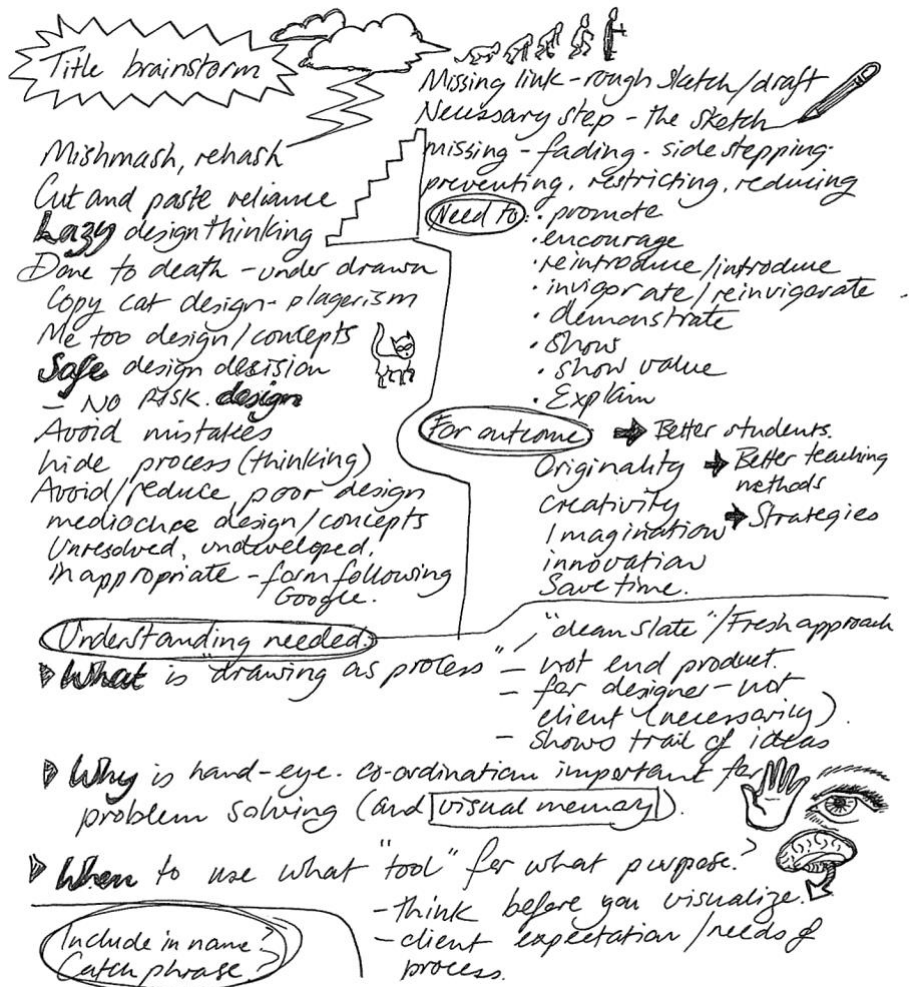 Title brainstorm
Mishmash, rehash
Cut and paste reliance
Lazy design thinking
Done to death - under drawn
Copy cat design - plagerism
Me too design/concepts
Safe design decision
- NO RISK. design
Avoid mistakes
hide process (thinking)
Avoid/reduce poor design
mediochre design/concepts
Unresolved, undeveloped,
inappropriate - form following
Google.
Missing link - rough sketch/draft
Necessary step - the sketch
missing - fading - side stepping
preventing, restricting, reducing
Need to: • promote
• encourage
• reintroduce/introduce
• invigorate/reinvigorate
• demonstrate
• show
• show value
• Explain
For outcome → Better students.
Originality → Better teaching
methods
Creativity
Imagination → Strategies
innovation
Save time.
Understanding needed.
What is "drawing as process"
- "clean slate"/Fresh approach
- not end product.
- for designer - not
client (necessarily).
- shows trail of ideas
Why is hand-eye. co-ordination important for
problem solving (and visual memory).
When to use what "tool" for what purpose?
- think before you visualize.
- client expectation/needs of
process.
Include in name?
Catch phrase?